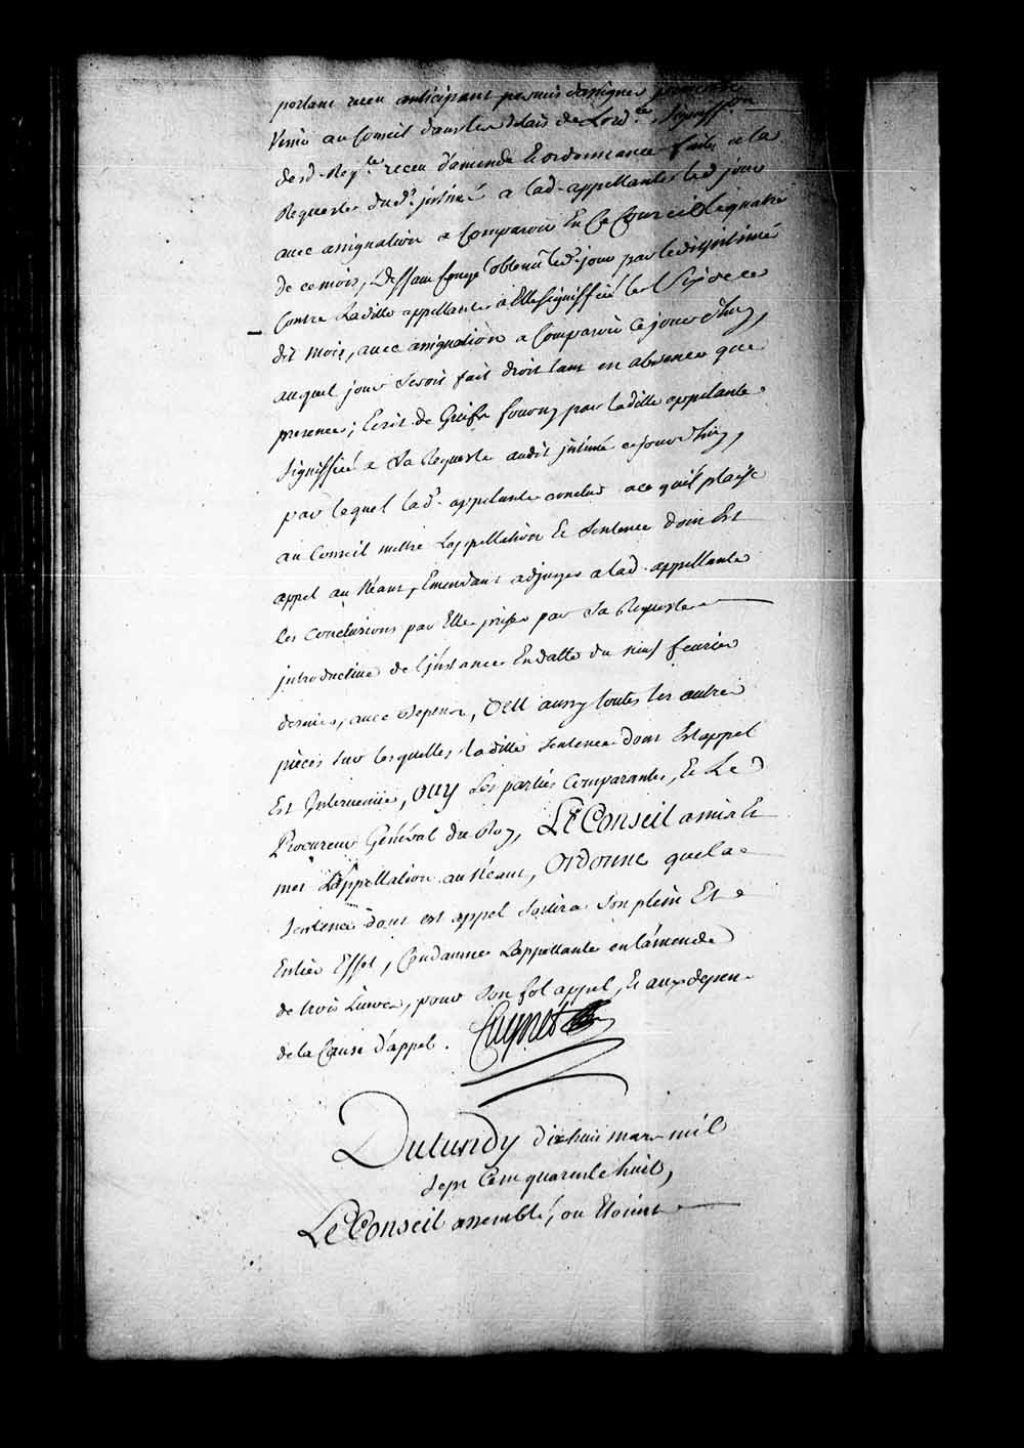 portant receu anticipant permis d'assigner pour
Venir au Conseil dans les delais de Lord.ce, signiff.on
desd. Req.te receu d'amende & ordonnance faite a la
Requeste dud.t jntimé a lad. appellante led jour
avec assignation a Comparoir En Ce Conseil le quatre
de ce mois, Deffaut Congé obtenu led. jour par ledit jntimé
Contre Ladite appellante a Elle signiffié le Six de ce
dit mois, avec assignation a Comparoir Ce jourd'huy,
auquel jour seroit fait droit tant en absence que
presence; Ecrit de Griefs fourny par ladite appelante
signiffié a Sa Requeste audit jntimé cejourd'huy,
par lequel lad.e appelante conclud a ce qu'il plaise
au Conseil mettre L'appellation & Sentence dont Est
appel au Neant, Emendant adjuger a lad. appellante
les Conclusions par Elle prises par Sa Requeste
jntroductive de l'jnstance En datte du neuf fevrier
dernier, avec depens, Veu aussy toutes les autres
pieces sur lesquelles ladite sentence dont Est appel
Est Intervenüe, Ouy Les parties Comparantes, & Le
Procureur Général du Roy, Le Conseil a mis &
met L'appellation au Neant, Ordonne que la
sentence dont est appel sortira Son plein Et
Entier Effet, Condamne L'appellante en l'amende
de trois Livres, pour Son fol appel, & aux depens
de la Cause d'appel. Cugnet
Du Lundy dix huit mars mil
sept Cent quarente huit,
Le Conseil assemblé, ou Etoient